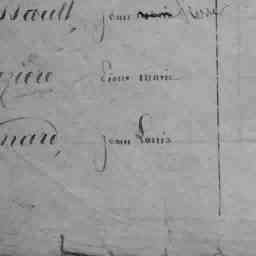 ssault, jean pierre
zière pierre marie
nard, jean Louis